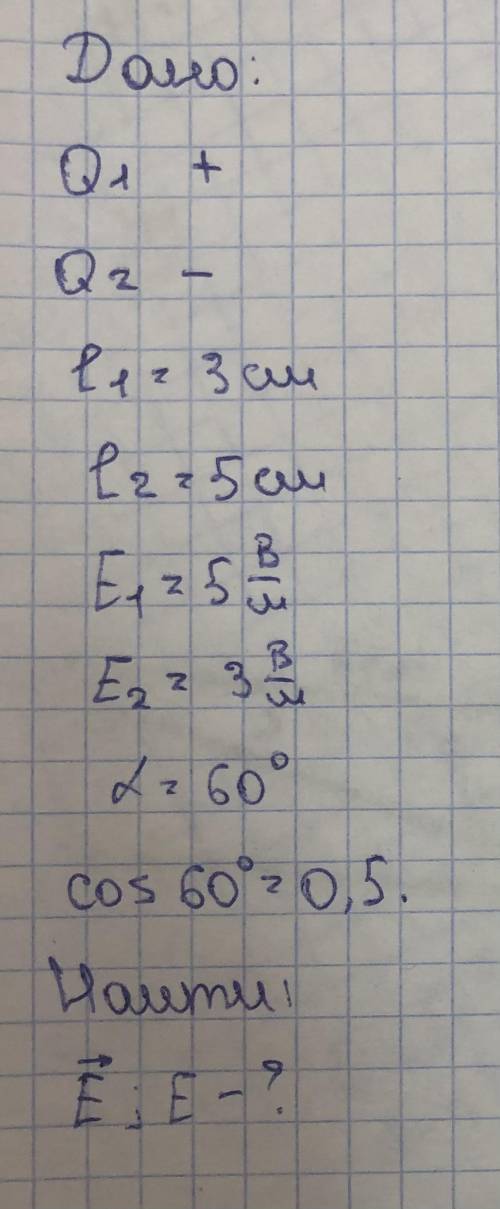 Дано:
Q1 +
Q2 -
l1 = 3 см
l2 = 5 см
E1 = 5 В/м
E2 = 3 В/м
α = 60°
cos 60° = 0,5.
Найти:
E⃗ ; E - ?